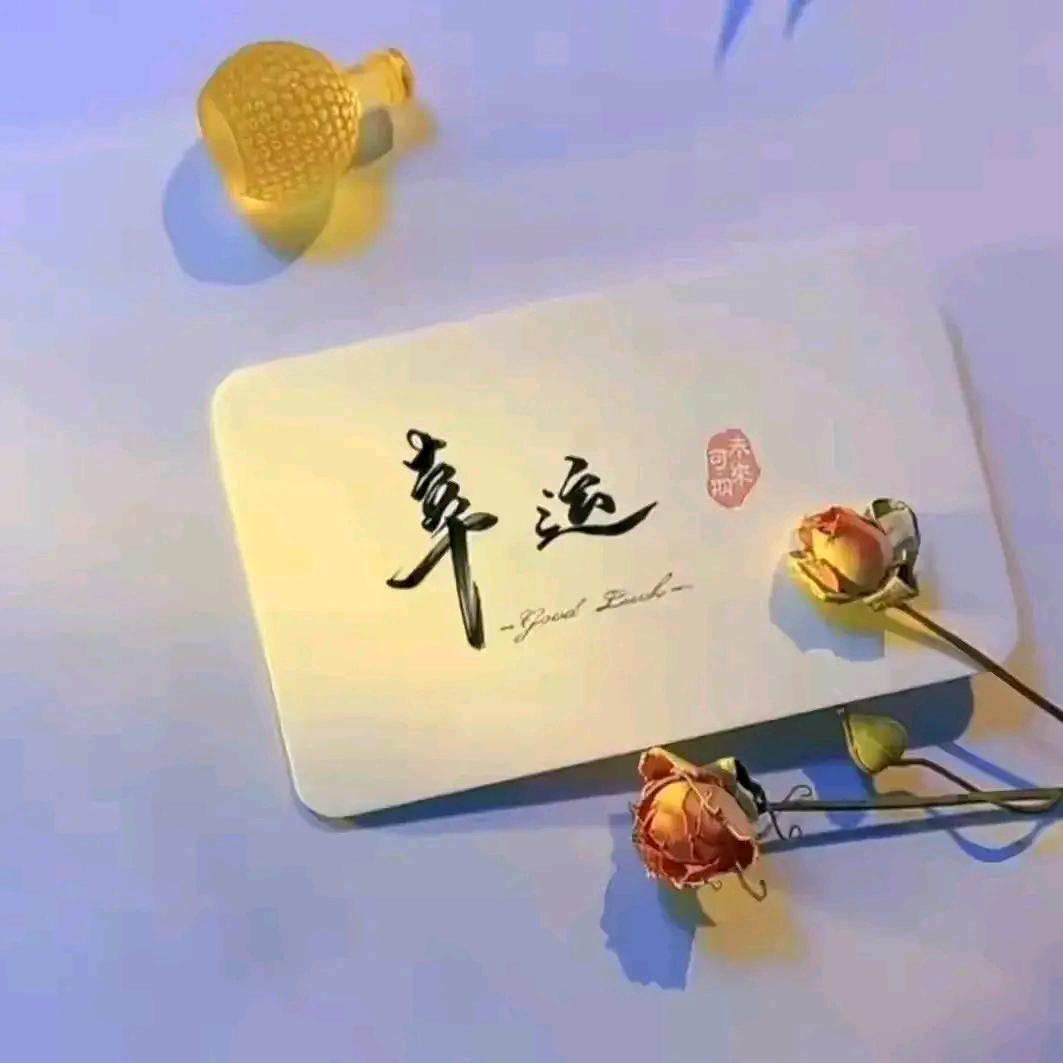 幸运
-Good Luck-
未来
可期